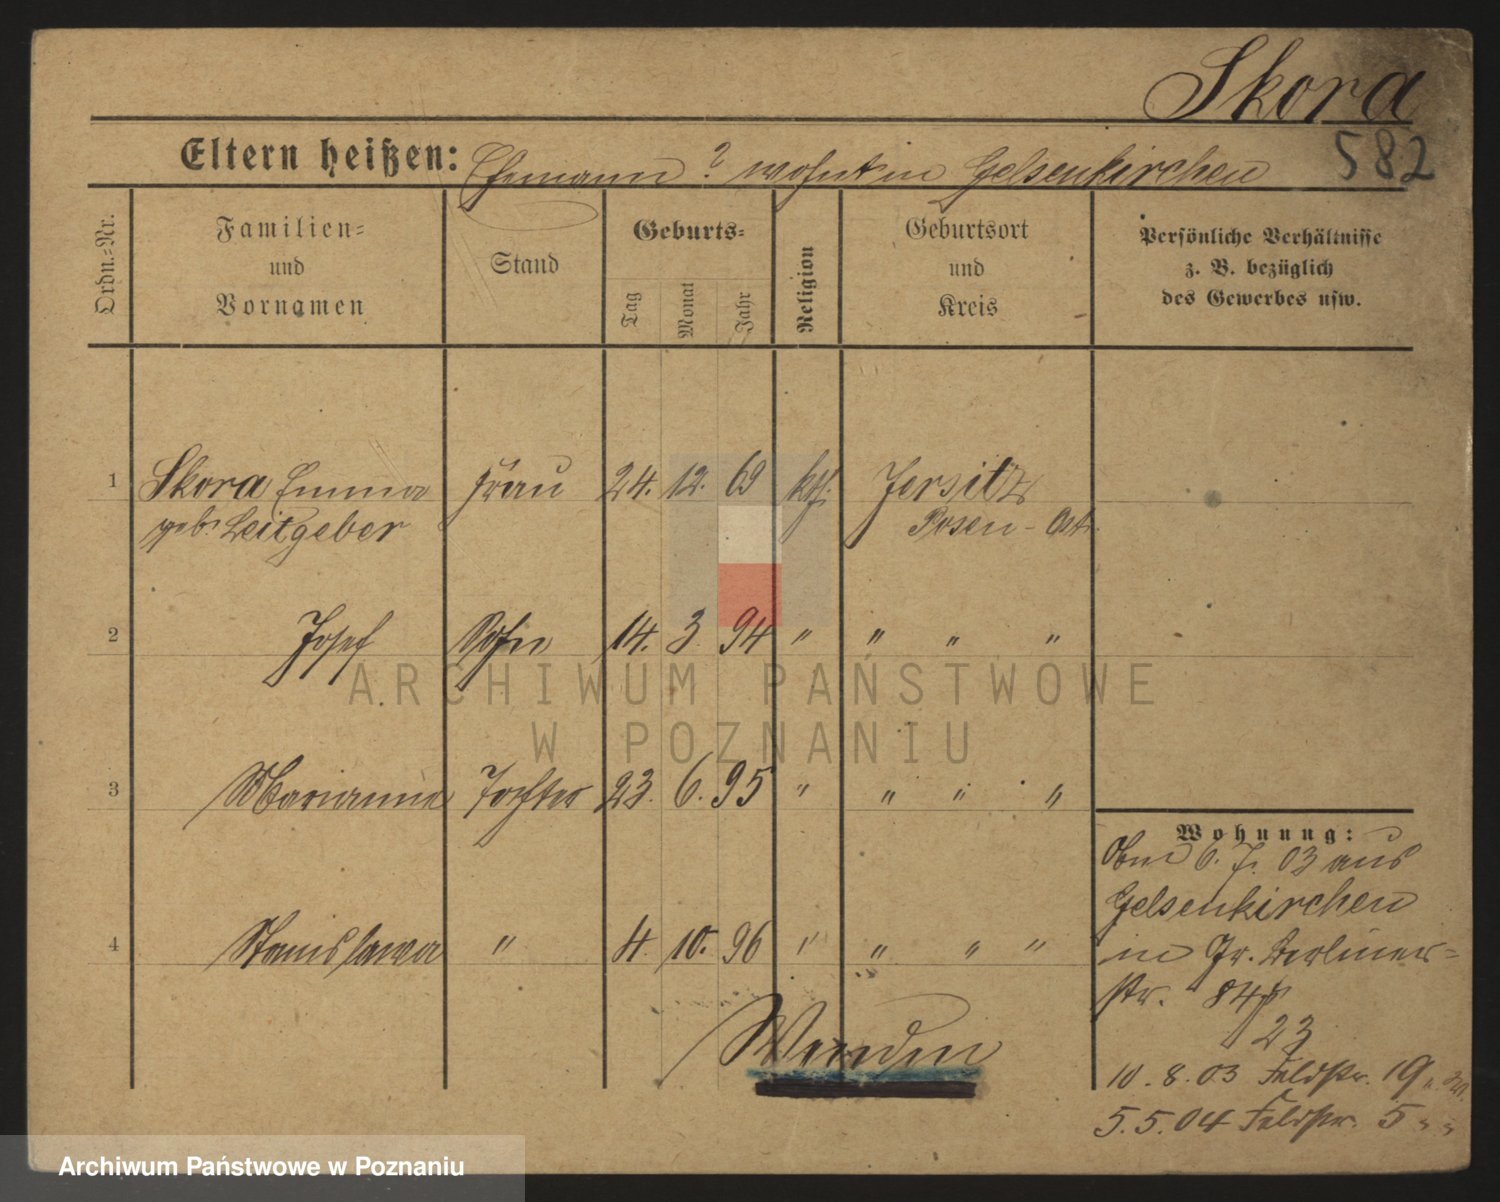 Skora
582
Eltern heißen: Ehemann ? wohnt in Gelsenkirchen
Ordn.-Nr.
Familien-
und
Vornamen
Stand
Geburts-
Tag
Monat
Jahr
Religion
Geburtsort
und
Kreis
Persönliche Verhältnisse
z. B. bezüglich
des Gewerbes usw.
1 Skora Emma Frau 24. 12. 69 kth. Jersitz
geb. Leitgeber Posen - Ost.
2 Josef Sohn 14. 3. 94 " " " "
ARCHIWUM PAŃSTWOWE
W POZNANIU
3 Marianna Tochter 23. 6. 95 " " " "
4 Stanislawa " 4. 10. 96 " " " "
Wohnung:
6. 7. 03 aus
Gelsenkirchen
in Jr. Berliner-
str. 84
23
10. 8. 03 Feldstr. 19
5. 5. 04 Feldstr. 5 " "
Wenden
Archiwum Państwowe w Poznaniu